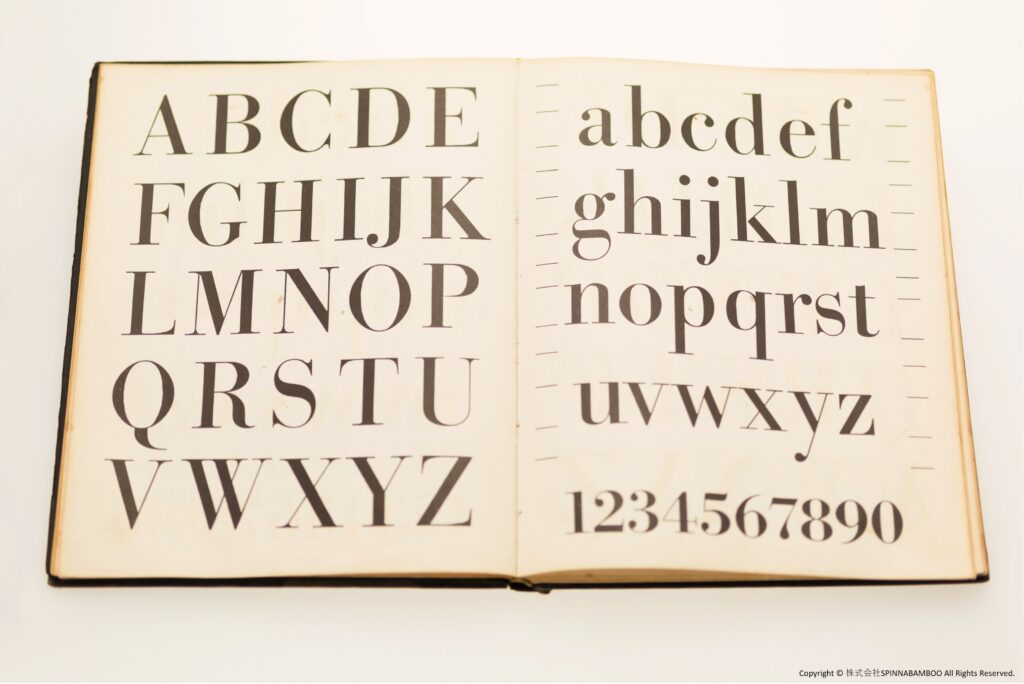 ABCDE
FGHIJK
LMNOP
QRSTU
VWXYZ
abcdef
ghijklm
nopqrst
uvwxyz
1234567890
Copyright © 株式会社SPINNABAMBOO All Rights Reserved.